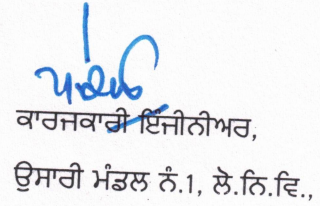 ਕਾਰਜਕਾਰੀ ਇੰਜੀਨੀਅਰ,
ਉਸਾਰੀ ਮੰਡਲ ਨੰ.1, ਲੋ.ਨਿ.ਵਿ.,